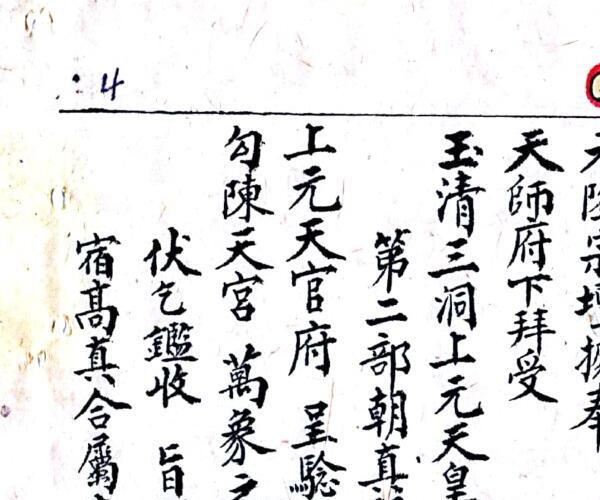 4
天師府下拜受
玉清三洞上元天皇
第二部朝真
上元天官府 呈騐
勾陳天宮 萬象
伏乞鑑收 旨
宿髙真合屬